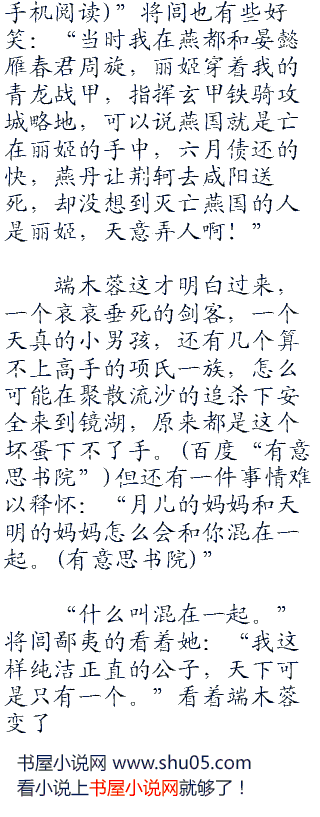 手机阅读)”将闾也有些好
笑：“当时我在燕都和晏懿
雁春君周旋，丽姬穿着我的
青龙战甲，指挥玄甲铁骑攻
城略地，可以说燕国就是亡
在丽姬的手中，六月债还的
快，燕丹让荆轲去咸阳送
死，却没想到灭亡燕国的人
是丽姬，天意弄人啊！”
端木蓉这才明白过来，
一个哀哀垂死的剑客，一个
天真的小男孩，还有几个算
不上高手的项氏一族，怎么
可能在聚散流沙的追杀下安
全来到镜湖，原来都是这个
坏蛋下不了手。(百度“有意
思书院”)但还有一件事情难
以释怀：“月儿的妈妈和天
明的妈妈怎么会和你混在一
起。(有意思书院)”
“什么叫混在一起。”
将闾鄙夷的看着她：“我这
样纯洁正直的公子，天下可
是只有一个。”看着端木蓉
变了
书屋小说网 www.shu05.com
看小说上书屋小说网就够了！